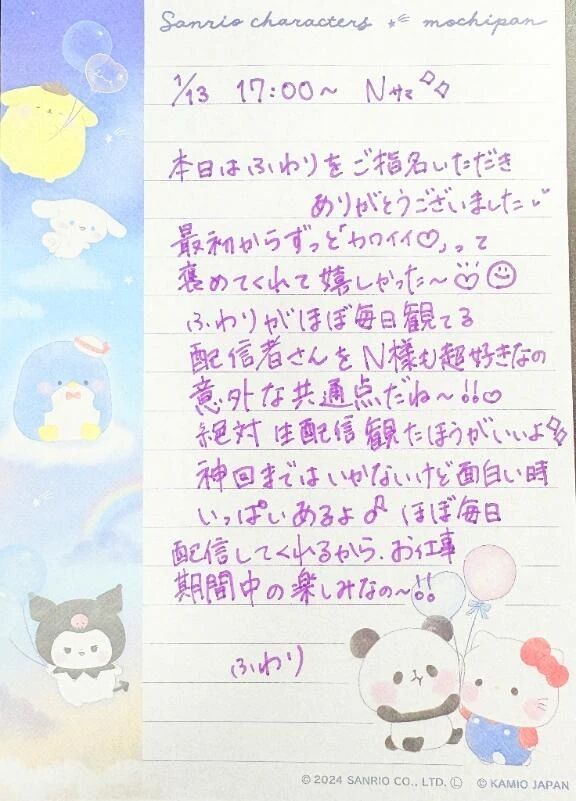 Sanrio characters mochipan
1/13 17:00～ Nサマ
本日はふわりをご指名いただき
ありがとうございました
最初からずっと「カワイイ♡」って
褒めてくれて嬉しかった～
ふわりがほぼ毎日観てる
配信者さんをN様も超好きなの
意外な共通点だね～!!♡
絶対生配信観たほうがいいよ
神回まではいかないけど面白い時
いっぱいあるよ♪ ほぼ毎日
配信してくれるから、お仕事
期間中の楽しみなの～!!
ふわり
© 2024 SANRIO CO., LTD. Ⓛ © KAMIO JAPAN